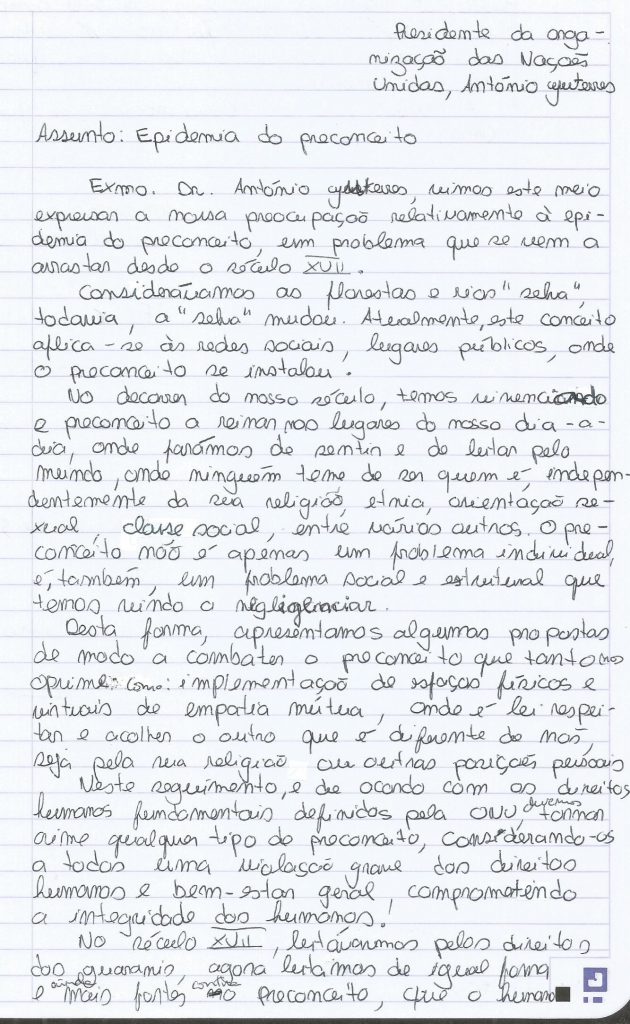 Presidente da orga-
nização das Nações
Unidas, António guterres
Assunto: Epidemia do preconceito
Exmo. Dr. António guterres, vimos este meio
expressar a nossa preocupação relativamente à epi-
demia do preconceito, um problema que se vem a
arrastar desde o século XVII.
Considerávamos as florestas e rios "selva",
todavia, a "selva" mudou. Atualmente, este conceito
aplica-se às redes sociais, lugares públicos, onde
o preconceito se instalou.
No decorrer do nosso século, temos vivenciando
e preconceito a reinar nos lugares do nosso dia-a-
dia, onde parámos de sentir e de lutar pelo
mundo, onde ninguém teme de ser quem é, indepen-
dentemente da sua religião, etnia, orientação se-
xual, classe social, entre vários outros. O pre-
conceito não é apenas um problema individual,
é, também, um problema social e estrutural que
temos vindo a negligenciar.
Desta forma, apresentamos algumas propostas
de modo a combater o preconceito que tanto nos
oprime como: implementação de espaços físicos e
virtuais de empatia mútua, onde é lei respei-
tar e acolher o outro que é diferente de nós,
seja pela sua religião ou outras posições pessoais
Neste seguimento, e de acordo com os direitos
humanos fundamentais definidos pela ONU, devemos tornar
crime qualquer tipo de preconceito, considerando-os
a todos uma violação grave dos direitos
humanos e bem-estar geral, comprometendo
a integridade dos humanos!
No século XVII, lutávamos pelos direitos
dos guaranis, agora lutamos de igual forma
e ainda mais fortes contra o preconceito, que o humano